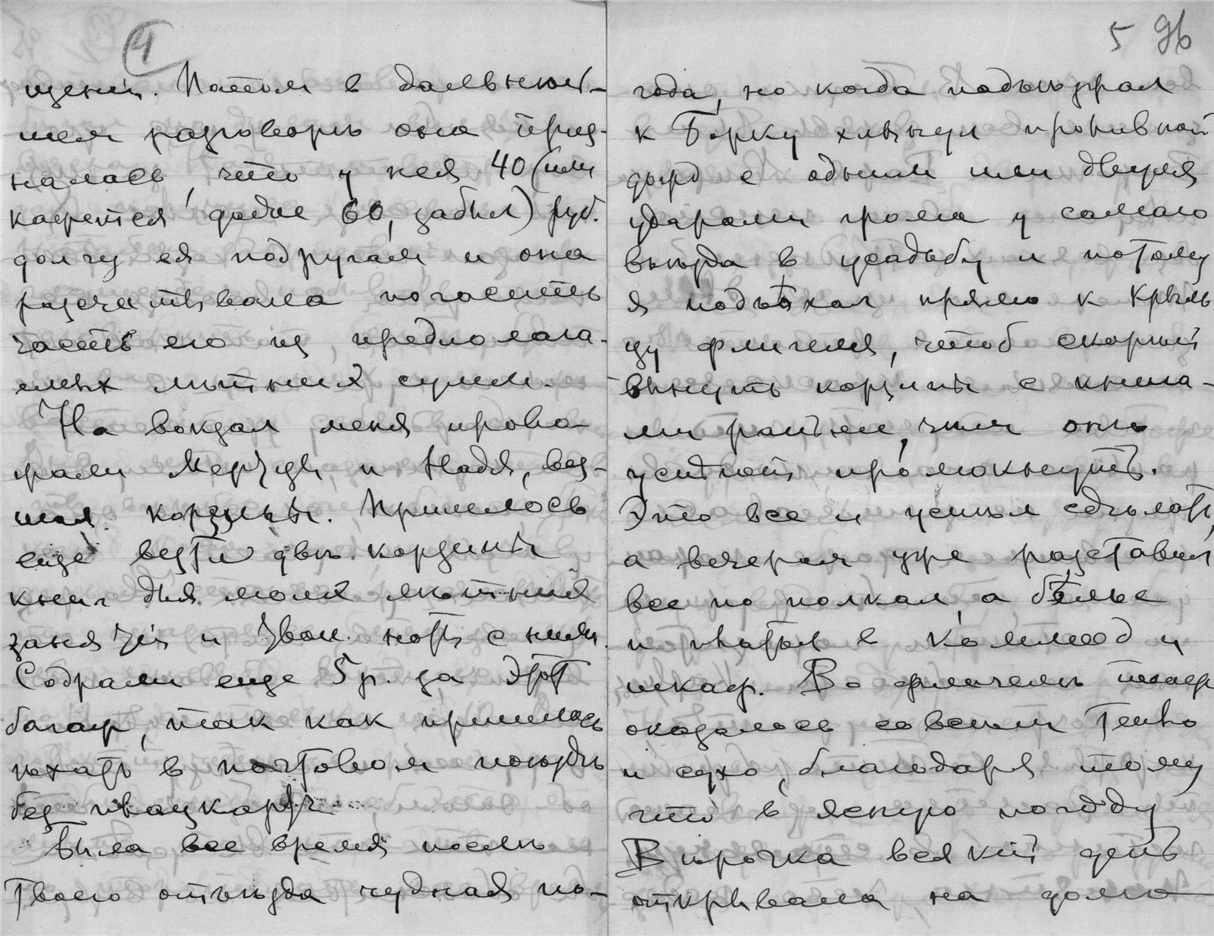 4
щении. Потом в дальней-
шем разговоре она приз-
налась, что у нея 40 (или
кажется даже 60, забыл) руб.
долгу ея подругам и она
разсчитывала погасить
часть его из предполага-
емых летних сумм.
На вокзал меня прово-
жали и Надя, вез-
шая корзины. Пришлось
еще везти две корзины
книг для моих летних
занятий и нот с ними.
Содрали еще 5 р. за этот
багаж, так как пришлось
ехать в почтовом поезде
без плацкарт
Была все время после
Твоего отъезда чудная по-
5 96
года, но когда подъезжал
к Борку хлынул проливной
дождь с одним или двумя
ударами грома у самаго
въезда в усадьбу и потому
я подъехал прямо к крыль
цу флигеля, чтоб скорей
вынуть корзины с книга-
ми раньше, чем они
успеют промокнуть.
Это все и успел сделать,
а вечером уже разставил
все по полкам, а белье
и платья в коммод и
шкаф. Во флигеле
оказалось совсем тепло
и сухо, благодаря тому
что в ясную погоду
Вирочка всякий день
открывала на долго